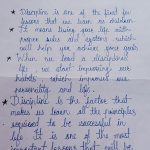 ★ Discipline is one of the kind for
lessons that we learn as children
★ It means living your life with
proper rules and systems which
will help you achieve your goals
★ When we lead a disciplined
life, we start improving our
habits, which improves our
personality and life.
★ Discipline is the factor that
makes us learn all the principles
required to be successful in
life. It is one of the most
important lessons that will be